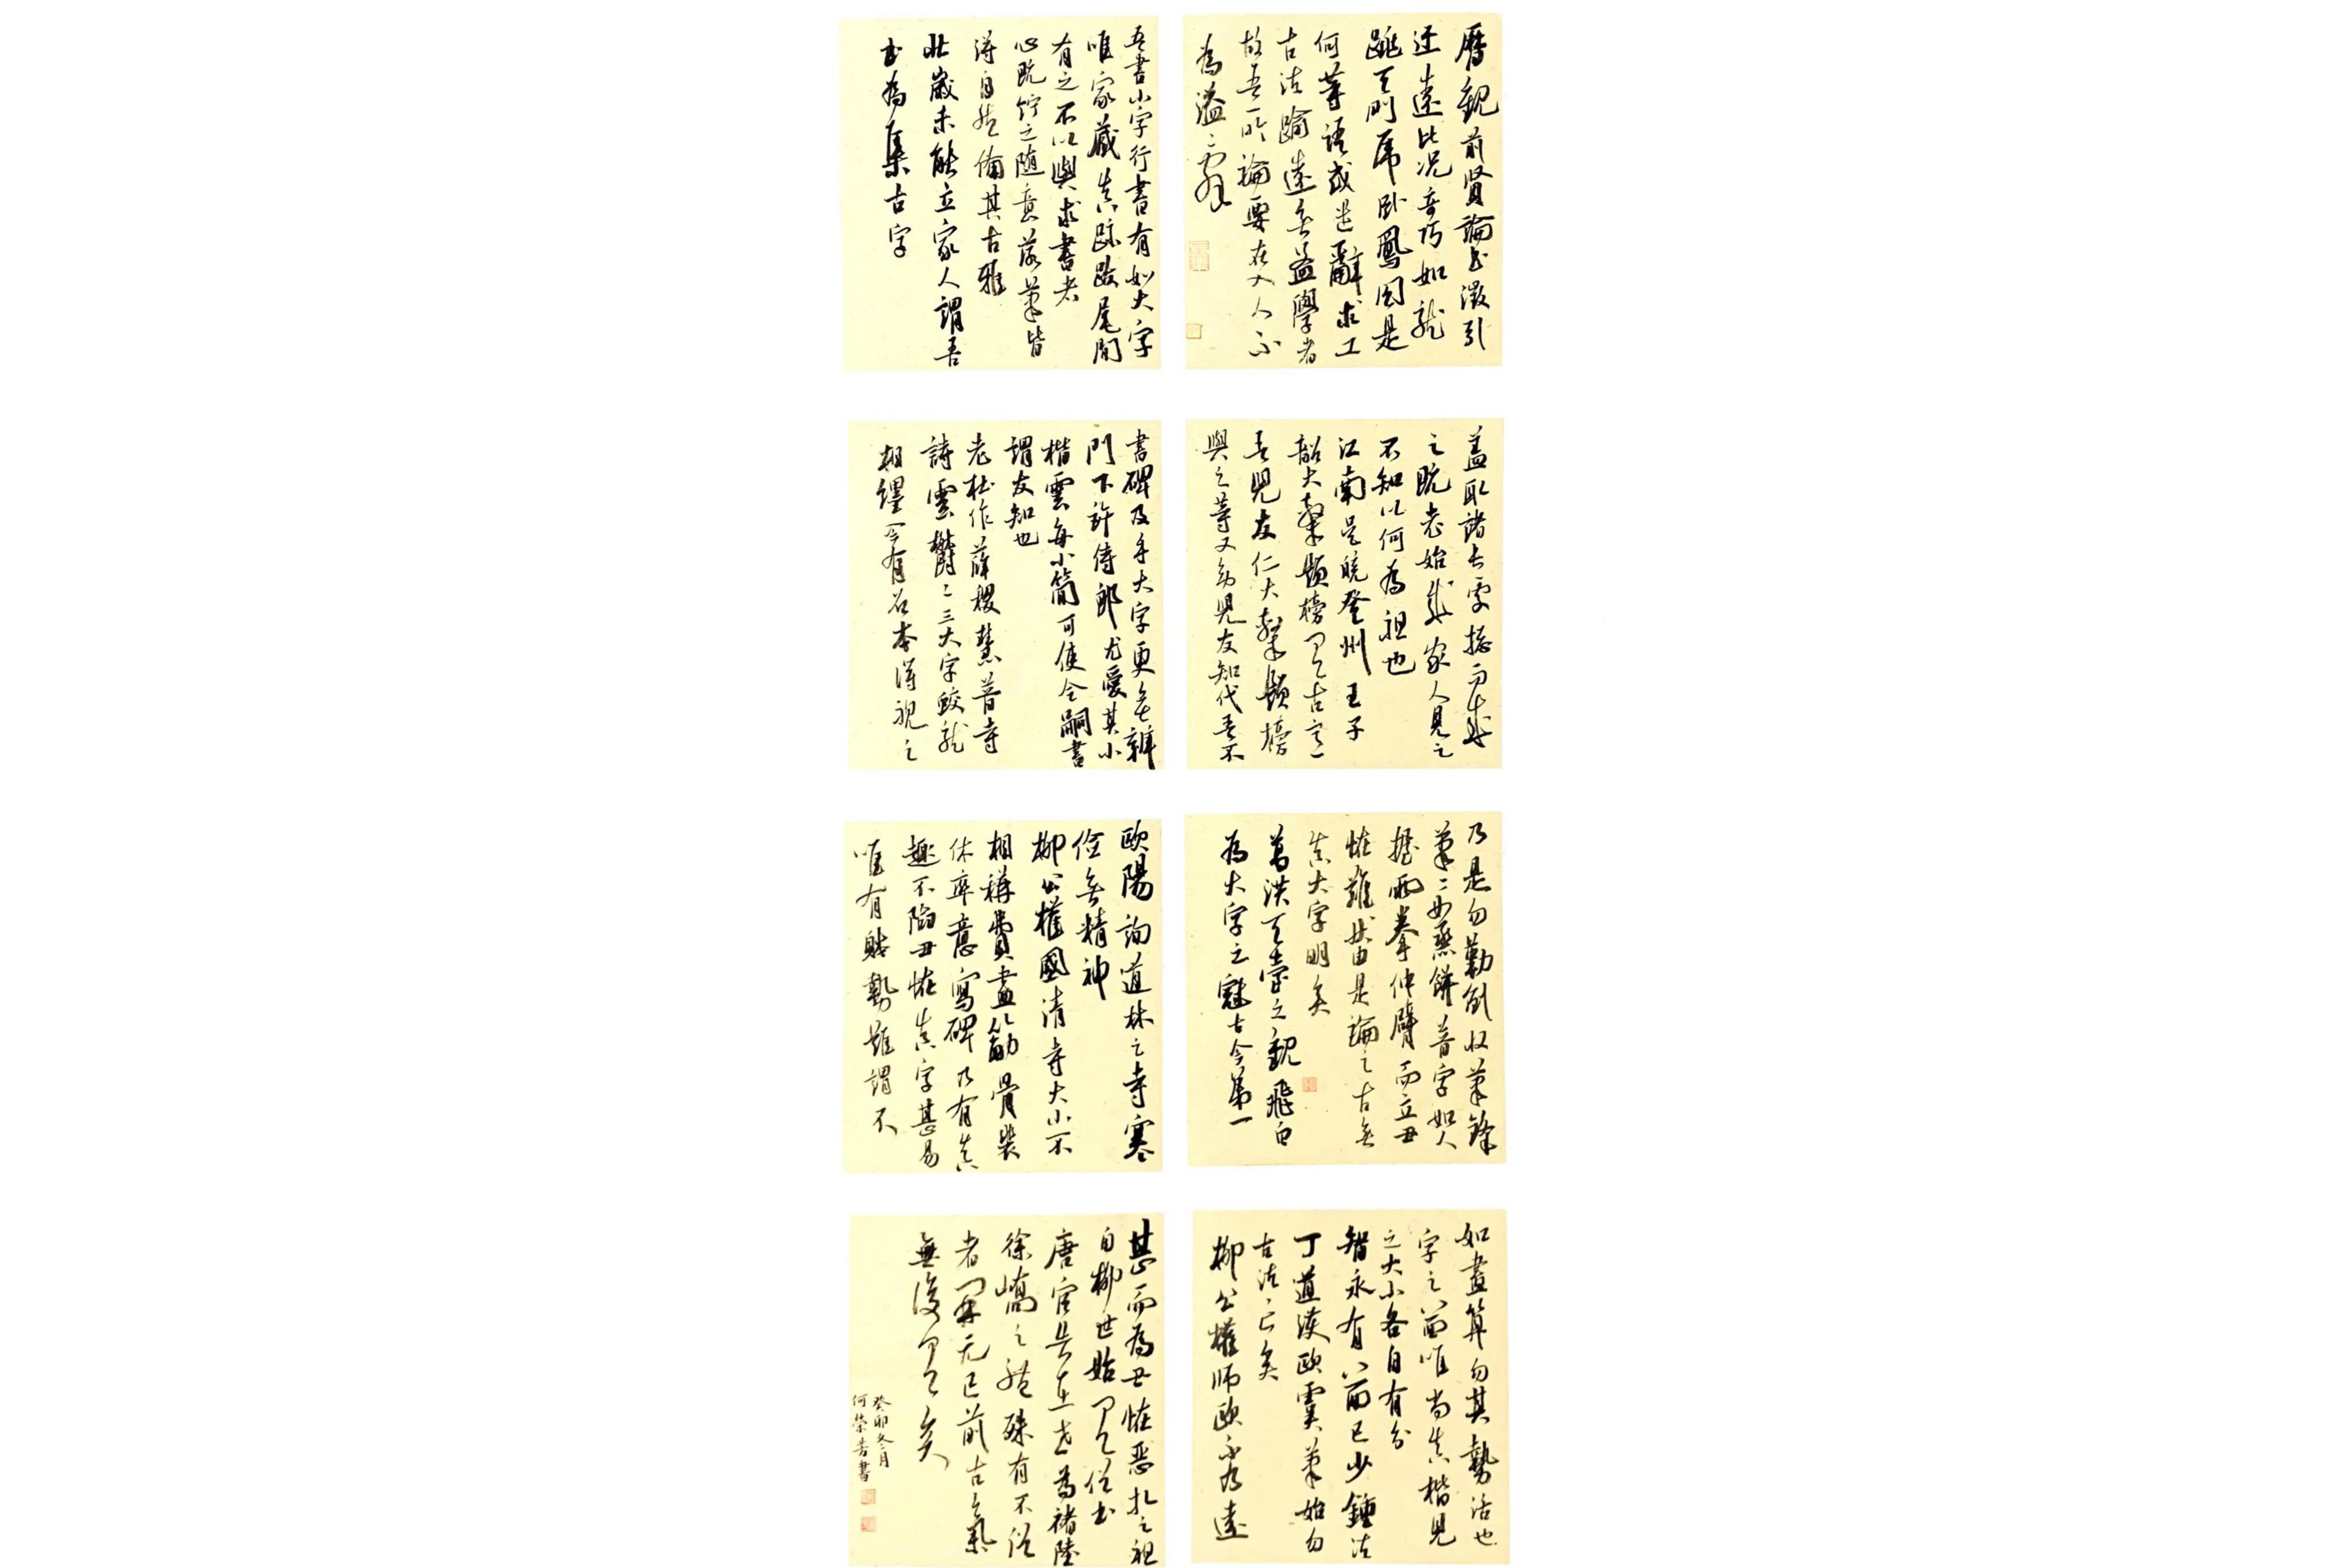 歷觀前賢論書徵引
迂遠比況奇巧如龍
跳天門虎臥鳳閣是
何等語或遣辭求工
古法踰遠無益學者
故吾所論要在入人不
為溢辭
吾書小字行書有如大字
唯家藏真跡跋尾間
有之不以與求書者
心既貯之隨意落筆皆
得自然備其古雅
壯歲未能立家人謂吾
書為集古字
蓋取諸長處總而成
之既老始成家人見之
不知以何為祖也
江南吳皖登州王子
韶大隸題榜有古意
吾兒友仁大隸題榜
與之等又幼兒友知代吾不
書碑及手大字更無辨
門下許侍郎尤愛其小
楷雲每小簡可使令嗣書
謂友知也
老杜作薛稷慧普寺
詩雲鬱鬱三大字蛟龍
相纏今有石本得視之
乃是勾勒倒收筆鋒
筆筆如蒸餅普字如人
握兩拳伸臂而立丑
怪難狀由是論之古無
真大字明矣
葛洪天臺之觀飛白
為大字之冠古今第一
歐陽詢道林之寺寒
儉無精神
柳公權國清寺大小不
相稱費盡筋骨裴
休率意寫碑乃有真
趣不陷丑怪真字甚易
唯有體勢難謂不
如畫算勻其勢活也
字之八面唯尚真楷見
之大小各自有分
智永有八面已少鍾法
丁道護歐虞筆始勻
古法亡矣
柳公權師歐不及遠
甚而為丑怪惡札之祖
自柳世始有俗書
唐官告在世為褚陸
徐嶠之體殊有不俗
者開元已前古氣
無復有矣
癸卯冬月
何榮芳書